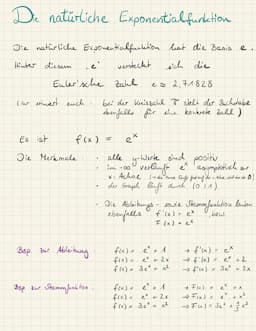 Die natürliche Exponentialfunktion
Die natürliche Exponentialfunktion hat die Basis e.
Hinter diesem „e" versteckt sich die
Euler'sche Zahl e ≈ 2,71828
(ihr erinnert euch - bei der Kreiszahl π steht der Buchstabe
ebenfalls für eine konkrete Zahl)
Es ist f(x) = e^x
Die Merkmale - alle y-Werte sind positiv
- im -∞ verläuft e^x asymptotisch zur
x-Achse
- der Graph läuft durch (0|1)
- Die Ableitungs- sowie Stammfunktion lauten
ebenfalls f'(x) = e^x bzw.
F(x) = e^x
Bsp. zur Ableitung: f(x) = e^x + 1 → f'(x) = e^x
f(x) = e^x + 2x → f'(x) = e^x + 2
f(x) = 3e^x + x² → f'(x) = 3e^x + 2x
Bsp. zur Stammfunktion: f(x) = e^x + 1 → F(x) = e^x + x
f(x) = e^x + 2x → F(x) = e^x + x²
f(x) = 3e^x + x² → F(x) = 3e^x + ⅓x³